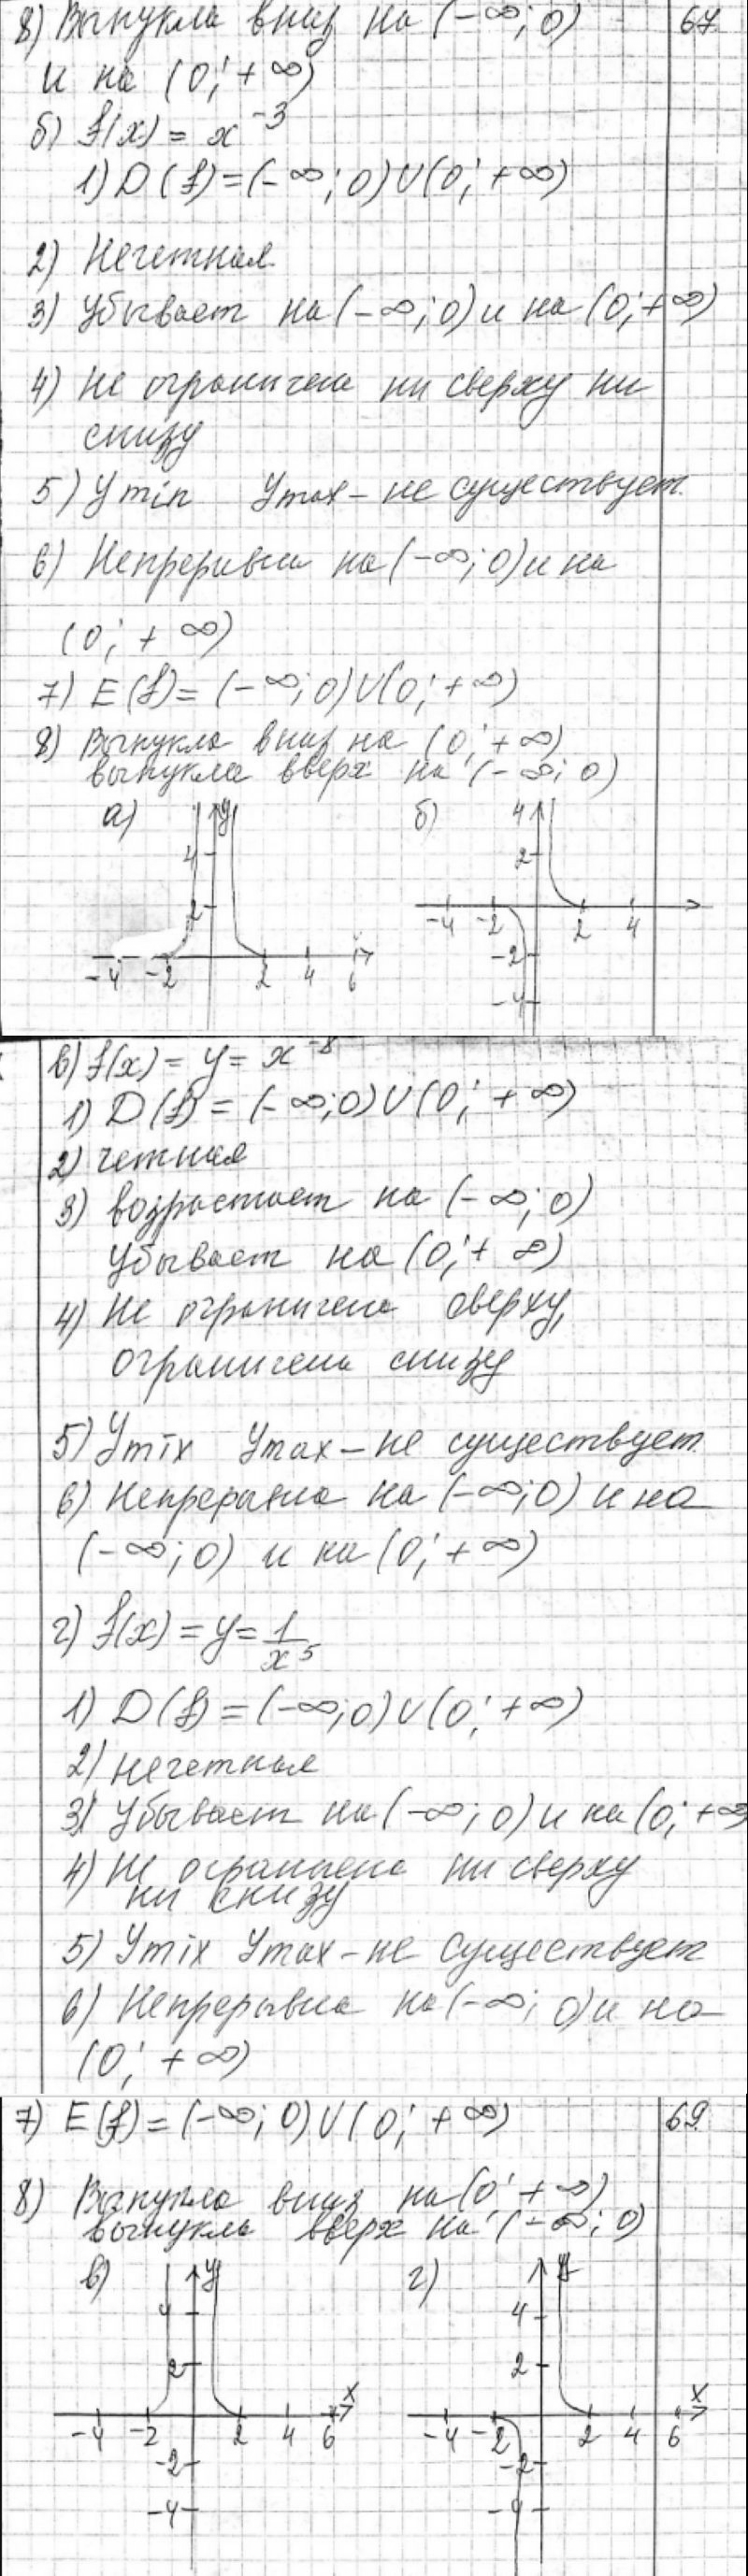 8) Выпукла вниз на (-∞; 0) 67.
и на (0; +∞)
б) f(x) = x⁻³
1) D(f)=(-∞; 0)U(0; +∞)
2) Нечетная
3) Убывает на (-∞; 0) и на (0; +∞)
4) Не ограничена ни сверху ни
снизу
5) Ymin Ymax - не существует.
6) Непреривна на (-∞; 0) и на
(0; +∞)
7) E(f) = (-∞; 0)U(0; +∞)
8) Выпукла вниз на (0; +∞)
выпукла вверх на (-∞; 0)
а) y б) 4
4 2
2 -4 -2 2 4
-4 -2 2 4 6 -2
-4
в) f(x) = y = x⁻⁸
1) D(f) = (-∞; 0)U(0; +∞)
2) четная
3) возрастает на (-∞; 0)
Убывает на (0; +∞)
4) Не ограничена сверху,
ограничена снизу
5) Ymix Ymax - не существует.
6) Непрерывна на (-∞; 0) и на
(-∞; 0) и на (0; +∞)
г) f(x) = y = 1/x⁵
1) D(f) = (-∞; 0)U(0; +∞)
2) нечетная
3) Убывает на (-∞; 0) и на (0; +∞
4) Не ограничена ни сверху
ни снизу
5) Ymix Ymax - не существует
6) Непрерывна на (-∞; 0) и на
(0; +∞)
7) E(f) = (-∞; 0)U(0; +∞) 69.
8) Выпукла вниз на (0; +∞)
выпукла вверх на (-∞; 0)
в) y г) y
4 4
2 2
x x
-4 -2 2 4 6 -4 -2 2 4 6
-2 -2
-4 -4